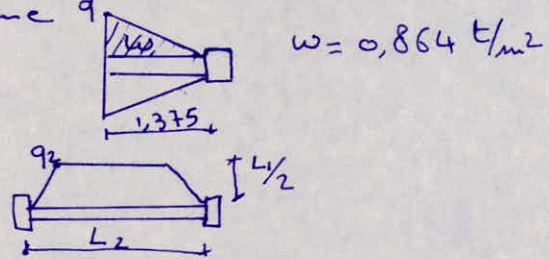 me q
w = 0,864 t/m²
1,375
q₂
L₁/2
L₂